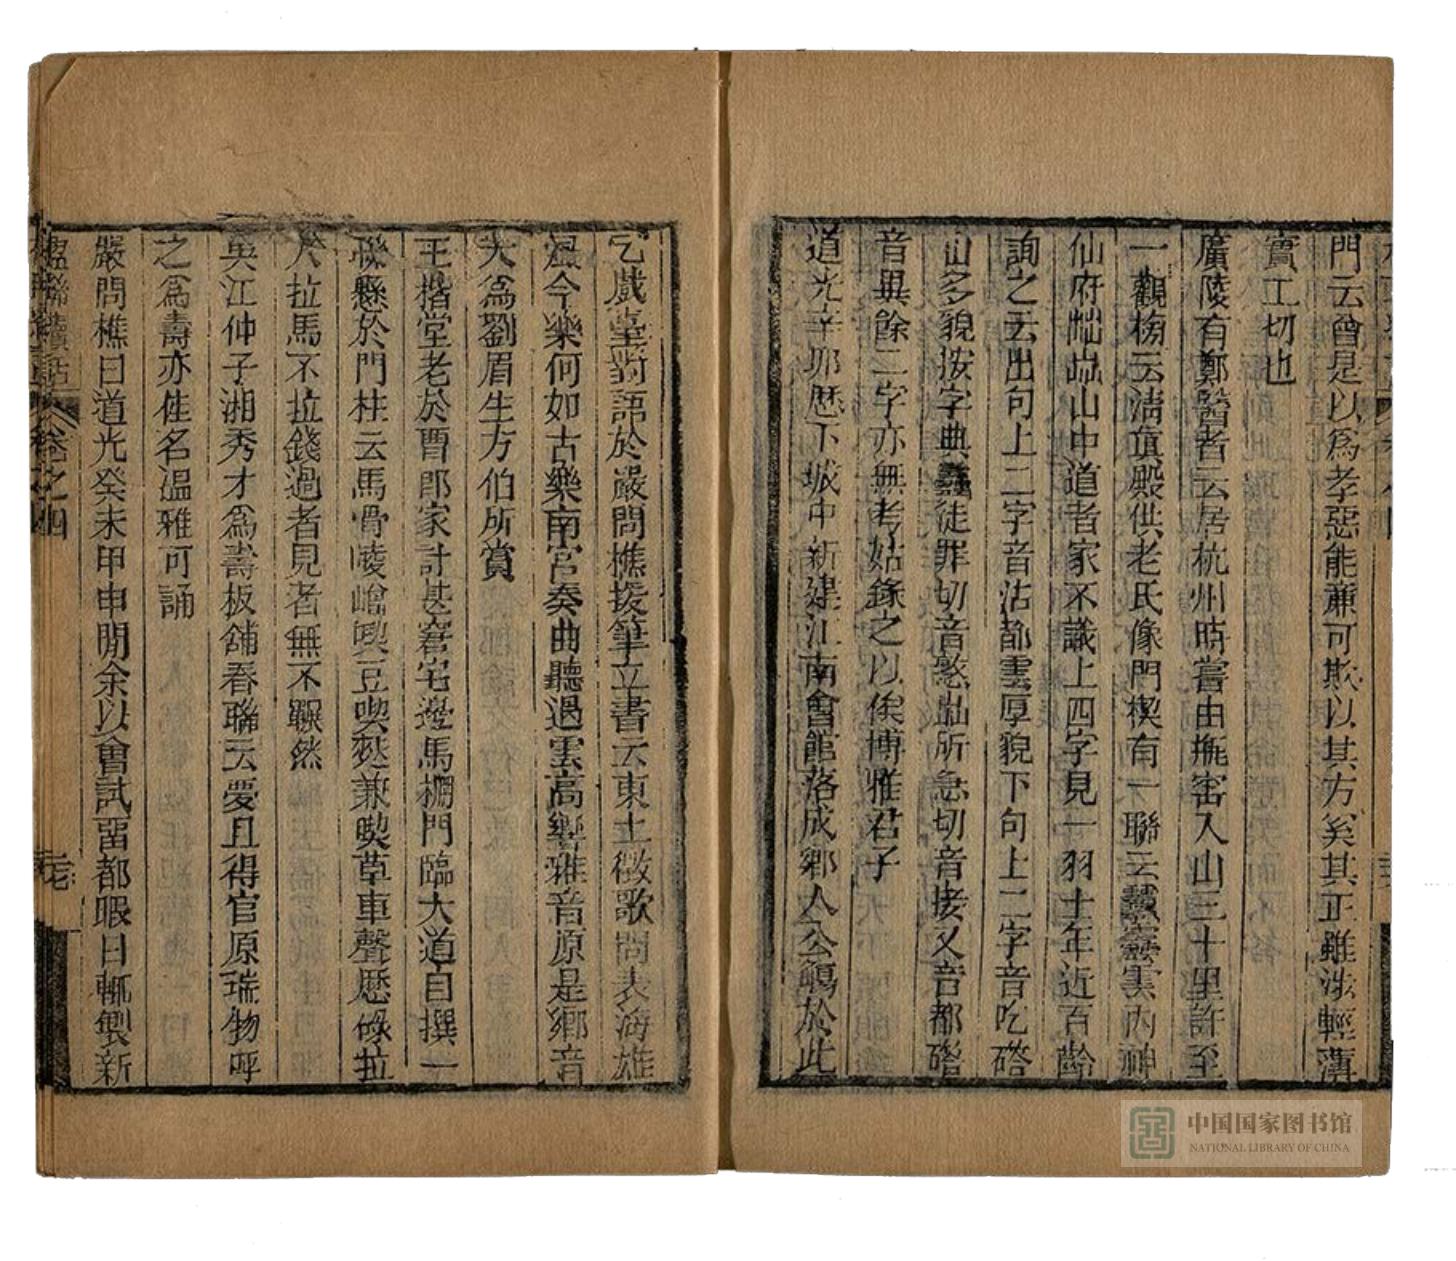 門云曾是以為孝惡能薰可欺以其方奚其正雖涉輕薄
實工切也
廣陵有鄭醫者云居杭州時嘗由㨪峇入山三十里許至
一觀榜云清眞殿供老氏像門楔有一聯云靆霴雲內神
仙府山中道者家不識上四字見一羽士年近百齡
詢之云出句上二字音沽都雲厚貌下句上二字音吃嗒
山多貌按字典徒罪切音憝所急切音接又音都嗒
音異餘二字亦無考姑錄之以俟博雅君子
道光辛卯歷下城中新建江南會館落成鄉人公觴於此
乞戲臺對語於嚴問樵援筆立書云東土徵歌問表海雄
風今樂何如古樂南宮奏曲聽過雲高響雅音原是鄉音
大為劉眉生方伯所賞
王楷堂老於曹郎家計甚窘宅邊馬棚門臨大道自撰一
聯懸於門柱云馬骨崚嶒喫豆喫麩兼喫草車聲歷碌拉
人拉馬不拉錢過者見者無不囅然
吳江仲子湘秀才為壽板舖春聯云夢且得官原瑞物呼
之為壽亦佳名溫雅可誦
嚴問樵曰道光癸未甲申間余以會試留都暇日輒製新
楹聯續話 卷之四